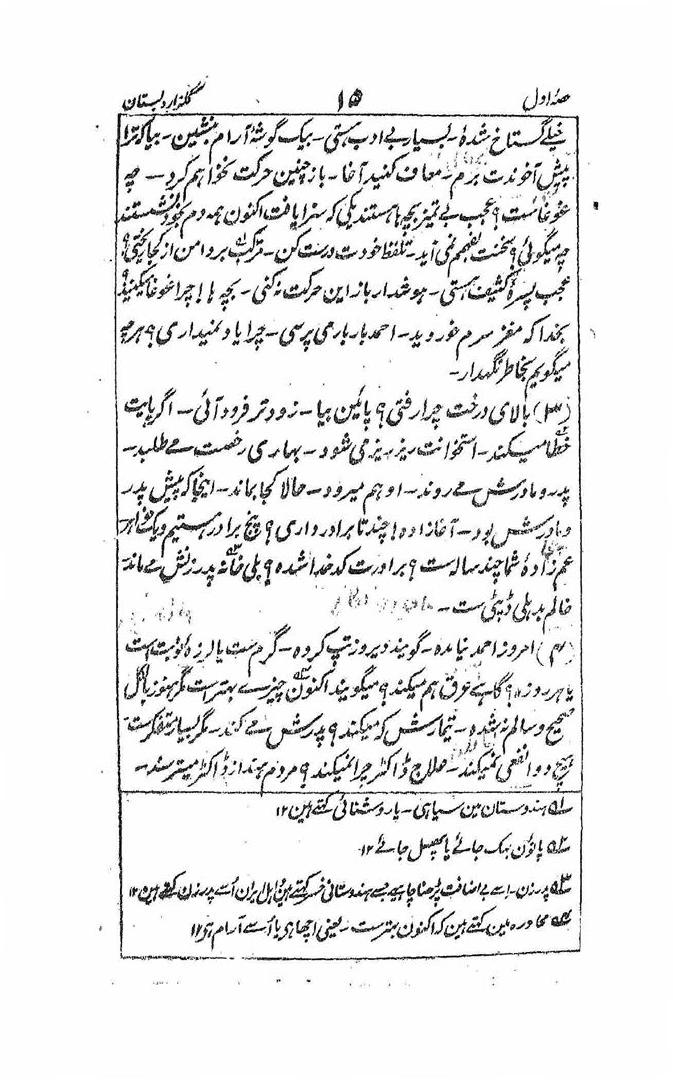 حصہ اول ۱۵ گلزار دبستان
خیلے گستاخ شدۂ۔ بسیار بے ادب ہستی۔ بیک گوشۂ آرام بنشین۔ بیا کہ ترا
پیش آخوندت برم۔ معاف کنید آغا۔ باز چنین حرکت نخواہم کرد۔ چہ
غوغاست؟ عجب بے تمیز بچہا ہستند یکی کہ سزا یافت اکنون ہمہ دم بخود نشستند
چہ میگوئی؟ سخنت بفہمم نمی آید۔ تلفظ خودت درست کن۔ مرکب برو امن از کجا ریختی؟
عجب پسرۂ کثیف ہستی۔ ہوشدار باز این حرکت نہ کنی۔ بچہ ہا! چرا غوغا میکنید؟
بخدا کہ مغز سرم خوردید۔ احمد بار بار می پرسی۔ چرا یاد نمیداری؟ ہرچہ
میگویم بخاطر نگہدار۔
(۳) بالای درخت چرا رفتی؟ پائین بیا۔ زود تر فرود آئی۔ اگر پایت
خطا میکند۔ استخوانت ریز ریز می شود۔ بہاری رخصت مے طلبد۔
پدر و مادرش مے روند۔ او ہم میرود۔ حالا کجا بماند۔ اینجا کہ پیش پدر
و مادرش بود۔ آغا زادہ! چند تا برادر داری؟ پنج برادر ہستیم و یک خواہر
عم زادۂ شما چند سالہ است؟ برادرت کد خدا شدہ؟ بلی خانۂ پدر زنش مے ماند
خالم بدہلی ڈپٹی ست۔
(۴) امروز احمد نیامدہ۔ گویند دیروز تپ کردہ۔ گرم ست یا لرزہ؟ نوبت است
یا ہر روزہ؟ گاہے عرق ہم میکند؟ میگویند اکنون چیزے بہتر است مگر ہنوز بالکل
صحیح و سالم نہ شدہ۔ تیمارش کہ میکند؟ پدرش مے کند۔ مگر بسیار متفکرست
ہیچ دوا نفعی نمیکند۔ علاج ڈاکٹر چرا نمیکند؟ مردم ہند از ڈاکٹر میترسند۔
لہ ہندوستان مین سیاہی۔ یا روشنائی کہتے ہین ۱۲
لہ پانوٴن بہک جائے یا پھسل جائے ۱۲
لہ پدر زن۔ اسے بے اضافت پڑھنا چاہیے جسے ہندوستانی خسر کہتے ہین اہل ایران اُسے پدر زن کہتے ہین ۱۲
لہ محاورہ مین کہتے ہین کہ اکنون بہتر ست۔ یعنی اچھا ہی یا اُسے آرام ہی ۱۲